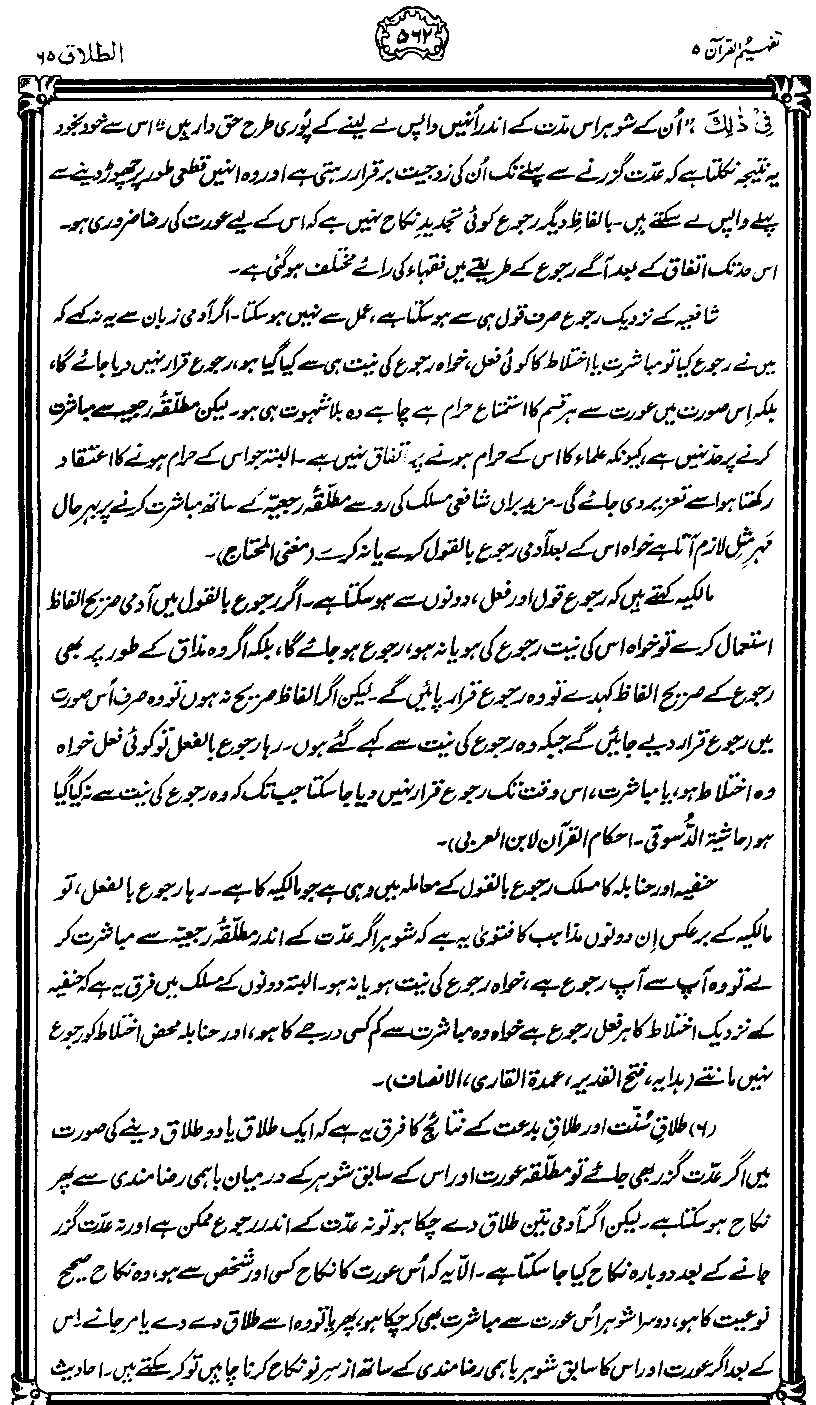 تفہیم القرآن ۵
۵۶۲
الطلاق ۶۵
فِیْ ذٰلِکَ، "اُن کے شوہر اس مدّت کے اندر اُنہیں واپس لے لینے کے پُوری طرح حق دار ہیں"۔ اس سے خود بخود
یہ نتیجہ نکلتا ہے کہ عدّت گزرنے سے پہلے تک اُن کی زوجیت برقرار رہتی ہے اور وہ انہیں قطعی طور پر چھوڑ دینے سے
پہلے واپس لے سکتے ہیں۔ بالفاظِ دیگر رجوع کوئی تجدیدِ نکاح نہیں ہے کہ اس کے لیے عورت کی رضا ضروری ہو۔
اس حد تک اتفاق کے بعد آگے رجوع کے طریقے میں فقہاء کی رائے مختلف ہوگئی ہے۔
شافعیہ کے نزدیک رجوع صرف قول ہی سے ہوسکتا ہے، عمل سے نہیں ہوسکتا۔ اگر آدمی زبان سے یہ نہ کہے کہ
میں نے رجوع کیا تو مباشرت یا اختلاط کا کوئی فعل، خواہ رجوع کی نیت ہی سے کیا گیا ہو، رجوع قرار نہیں دیا جائے گا،
بلکہ اِس صورت میں عورت سے ہر قسم کا استمتاع حرام ہے چاہے وہ بلا شہوت ہی ہو۔ لیکن مطلّقۂ رجعیہ سے مباشرت
کرنے پر حد نہیں ہے، کیونکہ علماء کا اس کے حرام ہونے پر اتفاق نہیں ہے۔ البتہ جو اس کے حرام ہونے کا اعتقاد
رکھتا ہو اسے تعزیر دی جائے گی۔ مزید براں شافعی مسلک کی رو سے مطلّقۂ رجعیّہ کے ساتھ مباشرت کرنے پر بہر حال
مَہرِ مِثل لازم آتا ہے خواہ اس کے بعد آدمی رجوع بالقول کرے یا نہ کرے (مغنی المحتاج)۔
مالکیہ کہتے ہیں کہ رجوع قول اور فعل، دونوں سے ہوسکتا ہے۔ اگر رجوع بالقول میں آدمی صریح الفاظ
استعمال کرے تو خواہ اس کی نیت رجوع کی ہو یا نہ ہو، رجوع ہوجائے گا، بلکہ اگر وہ مذاق کے طور پر بھی
رجوع کے صریح الفاظ کہدے تو وہ رجوع قرار پائیں گے۔ لیکن اگر الفاظ صریح نہ ہوں تو وہ صرف اُس صورت
میں رجوع قرار دیے جائیں گے جبکہ وہ رجوع کی نیت سے کہے گئے ہوں۔ رہا رجوع بالفعل تو کوئی فعل خواہ
وہ اختلاط ہو، یا مباشرت، اس وقت تک رجوع قرار نہیں دیا جاسکتا جب تک کہ وہ رجوع کی نیت سے نہ کیا گیا
ہو (حاشیۃ الدُّسوقی۔ احکام القرآن لابن العربی)۔
حنفیہ اور حنابلہ کا مسلک رجوع بالقول کے معاملہ میں وہی ہے جو مالکیہ کا ہے۔ رہا رجوع بالفعل، تو
مالکیہ کے برعکس اِن دونوں مذاہب کا فتویٰ یہ ہے کہ شوہر اگر عدّت کے اندر مطلّقۂ رجعیّہ سے مباشرت کر
لے تو وہ آپ سے آپ رجوع ہے، خواہ رجوع کی نیت ہو یا نہ ہو۔ البتہ دونوں کے مسلک میں فرق یہ ہے کہ حنفیہ
کے نزدیک اختلاط کا ہر فعل رجوع ہے خواہ وہ مباشرت سے کم کسی درجے کا ہو، اور حنابلہ محض اختلاط کو رجوع
نہیں مانتے (ہدایہ، فتح القدیر، عمدۃ القاری، الانصاف)۔
(۶) طلاقِ سُنّت اور طلاقِ بدعت کے نتائج کا فرق یہ ہے کہ ایک طلاق یا دو طلاق دینے کی صورت
میں اگر عدّت گزر بھی جائے تو مطلّقہ عورت اور اس کے سابق شوہر کے درمیان باہمی رضا مندی سے پھر
نکاح ہوسکتا ہے۔ لیکن اگر آدمی تین طلاق دے چکا ہو تو نہ عدّت کے اندر رجوع ممکن ہے اور نہ عدّت گزر
جانے کے بعد دوبارہ نکاح کیا جاسکتا ہے۔ الّا یہ کہ اُس عورت کا نکاح کسی اور شخص سے ہو، وہ نکاح صحیح
نوعیت کا ہو، دوسرا شوہر اُس عورت سے مباشرت بھی کرچکا ہو، پھر یا تو وہ اسے طلاق دے دے یا مر جائے اس
کے بعد اگر عورت اور اس کا سابق شوہر باہمی رضا مندی کے ساتھ از سرِ نو نکاح کرنا چاہیں تو کرسکتے ہیں۔ احادیث